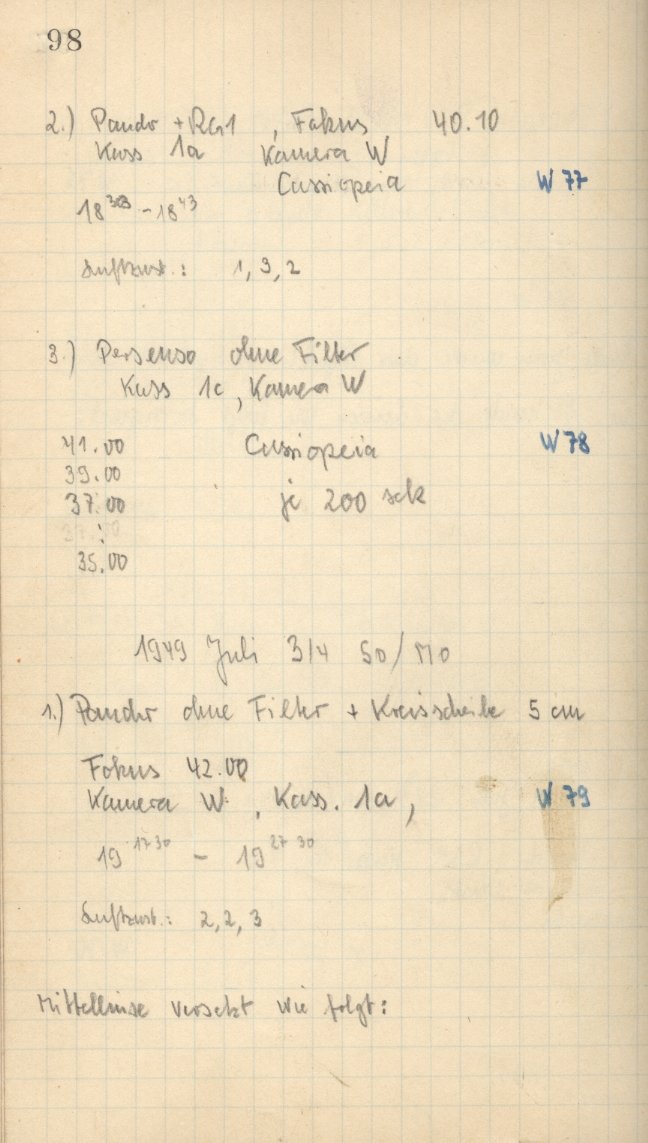 98
2.) Panchr + RG1 , Fokus 40.10
Kass 1a Kamera W
Cassiopeia W 77
18³³ - 18⁴³
Luftzust.: 1, 3, 2
3.) Persenso ohne Filter
Kass 1c, Kamera W
41.00 Cassiopeia W 78
39.00
37.00 je 200 sek
37.00
:
35.00
1949 Juli 3/4 So/Mo
1.) Panchr ohne Filter + Kreisscheibe 5 cm
Fokus 42.00
Kamera W. , Kass. 1a, W 79
19 ¹⁷ ³⁰ - 19 ²⁷ ³⁰
Luftzust.: 2, 2, 3
Mittellinse versetzt wie folgt: